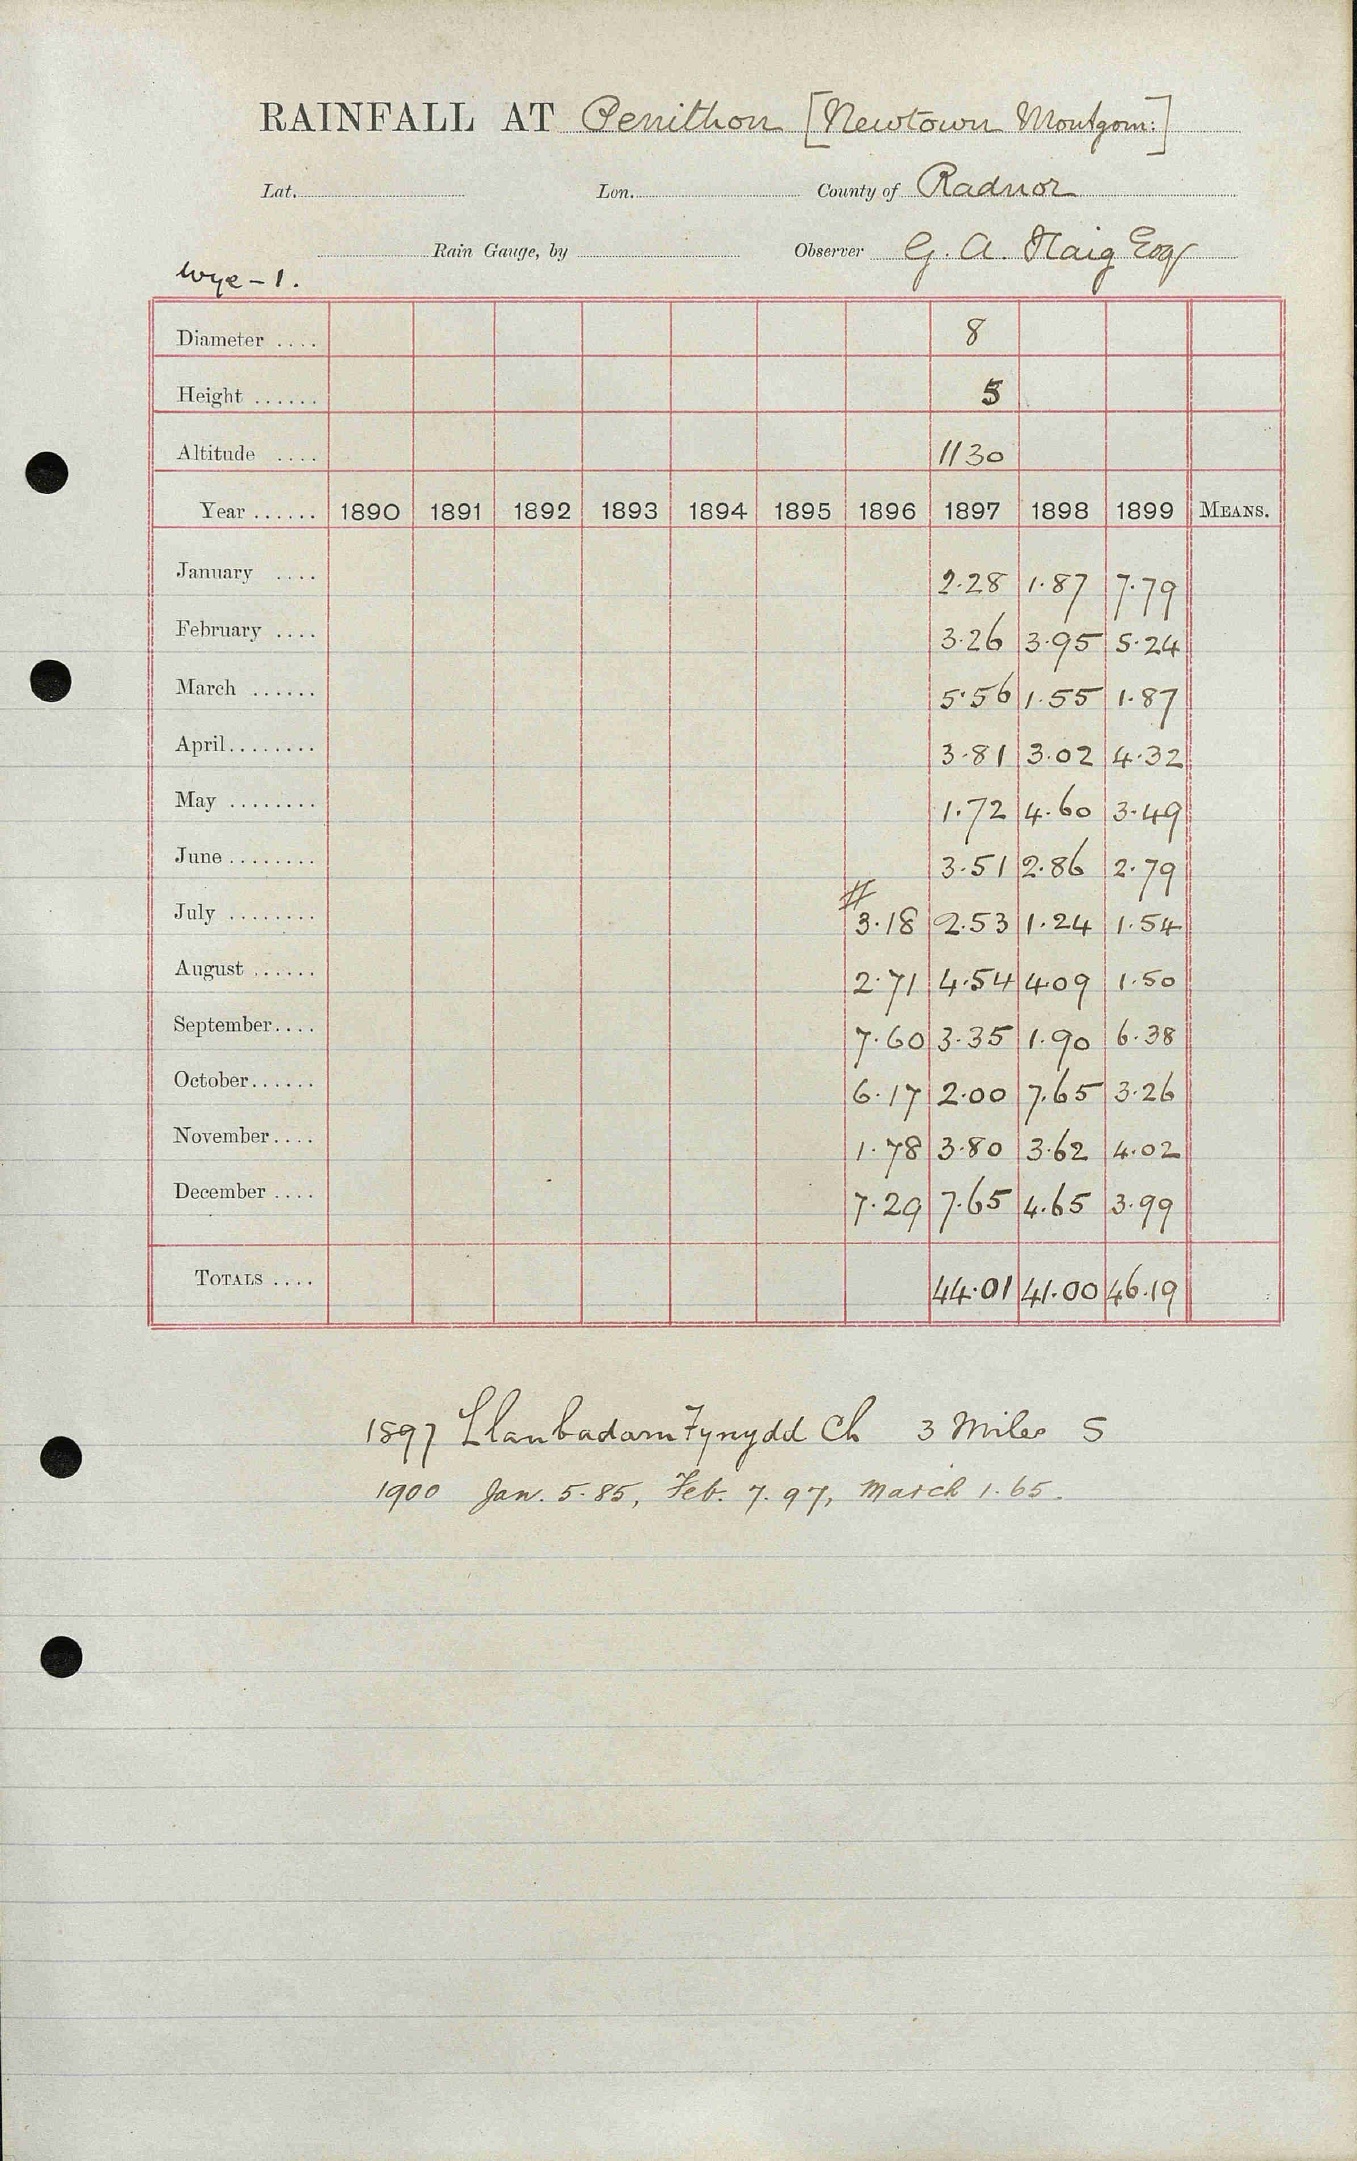 RAINFALL AT Penithon [Newtown Montgom:]
Lat. Lon. County of Radnor
Rain Gauge, by Observer G. A. Haig Esq
Wye - 1.
Diameter .... 8
Height ...... 5
Altitude .... 1130
Year ...... 1890 1891 1892 1893 1894 1895 1896 1897 1898 1899 MEANS.
January .... 2.28 1.87 7.79
February .... 3.26 3.95 5.24
March ...... 5.56 1.55 1.87
April........ 3.81 3.02 4.32
May ........ 1.72 4.60 3.49
June ........ 3.51 2.86 2.79
July ........ # 3.18 2.53 1.24 1.54
August ...... 2.71 4.54 4.09 1.50
September.... 7.60 3.35 1.90 6.38
October...... 6.17 2.00 7.65 3.26
November.... 1.78 3.80 3.62 4.02
December .... 7.29 7.65 4.65 3.99
TOTALS .... 44.01 41.00 46.19
1897 Llanbadarn Fynydd Ch 3 Miles S
1900 Jan. 5.85, Feb. 7.97, March 1.65.